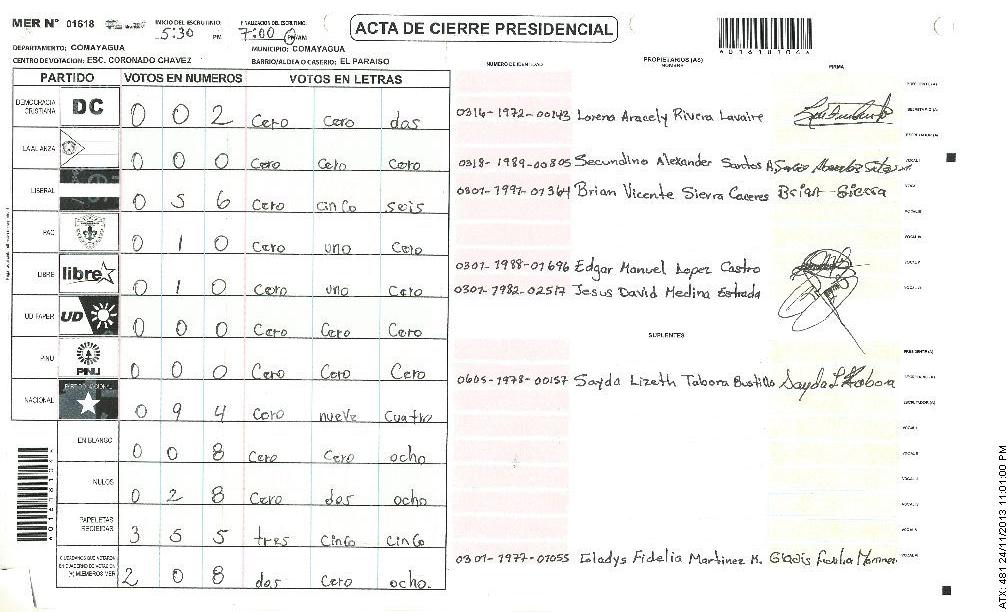 MER N° 01618
INICIO DEL ESCRUTINIO: 5:30 PM
FINALIZACION DEL ESCRUTINIO: 7:00 PM/AM
ACTA DE CIERRE PRESIDENCIAL
DEPARTAMENTO: COMAYAGUA
MUNICIPIO: COMAYAGUA
CENTRO DE VOTACION: ESC. CORONADO CHAVEZ
BARRIO/ALDEA O CASERIO: EL PARAISO
PARTIDO VOTOS EN NUMEROS VOTOS EN LETRAS
NUMERO DE IDENTIDAD PROPIETARIOS (AS) NOMBRE FIRMA
DEMOCRACIA CRISTIANA DC 0 0 2 Cero Cero dos
0 0 0 Cero Cero Cero
LIBERAL 0 5 6 Cero cinco seis
PAC 0 1 0 Cero uno Cero
LIBRE libre 0 1 0 Cero uno Cero
UD FAPER UD 0 0 0 Cero Cero Cero
PINU PINU 0 0 0 Cero Cero Cero
NACIONAL PARTIDO NACIONAL 0 9 4 Cero nueve Cuatro
EN BLANCO 0 0 8 Cero Cero ocho
NULOS 0 2 8 Cero dos ocho
PAPELETAS RECIBIDAS 3 5 5 tres Cinco Cinco
CIUDADANOS QUE VOTARON EN CUADERNO DE VOTACION (Y) MIEMBROS MER 2 0 8 dos Cero ocho.
0316-1972-00143 Lorena Aracely Rivera Lavaire
0318-1989-00805 Secundino Alexander Santos A
0301-1991-01364 Brian Vicente Sierra Caceres Brian Sierra
0301-1988-01696 Edgar Manuel Lopez Castro
0301-1982-02517 Jesus David Medina Estrada
SUPLENTES
0605-1978-00157 Sayda Lizeth Tabora Bustillo
0301-1977-01055 Gladys Fidelia Martinez M.
ATX: 481 24/11/2013 11:01:00 PM